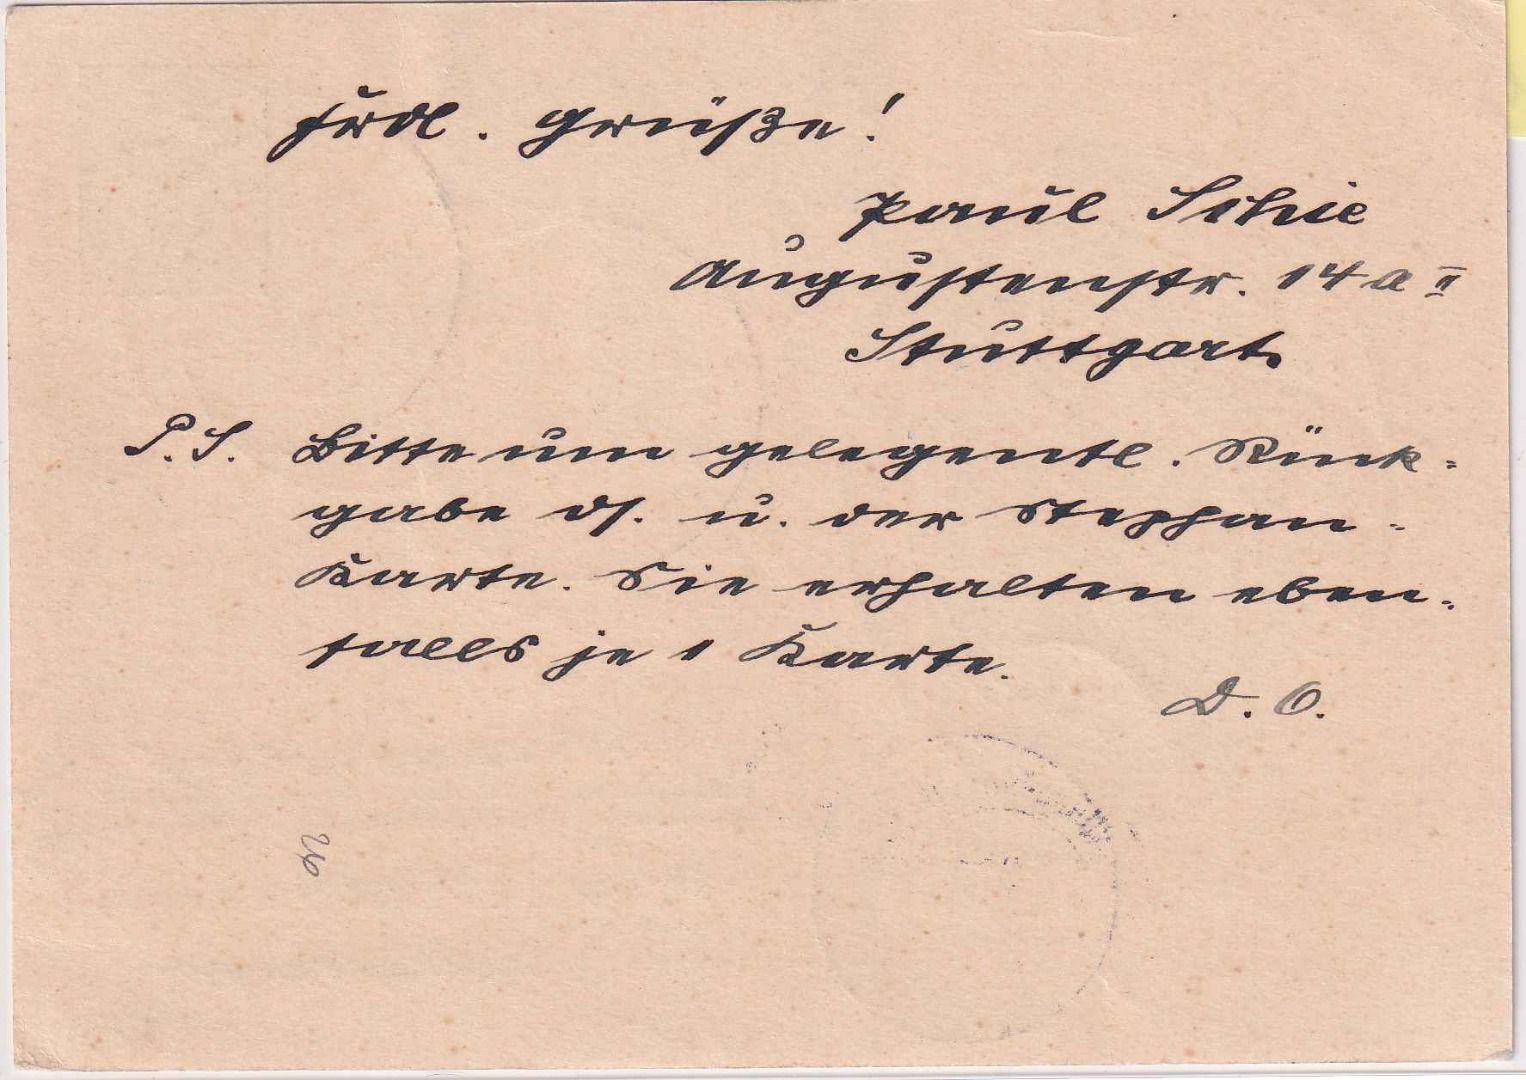 Frdl. Grüße!
Paul Schie
Augustenstr. 14 a II
Stuttgart.
P.S. Bitte um gelegentl. Rück-
gabe ds. u. der Stephan-
Karte. Sie erhalten eben-
falls je 1 Karte.
D. O.